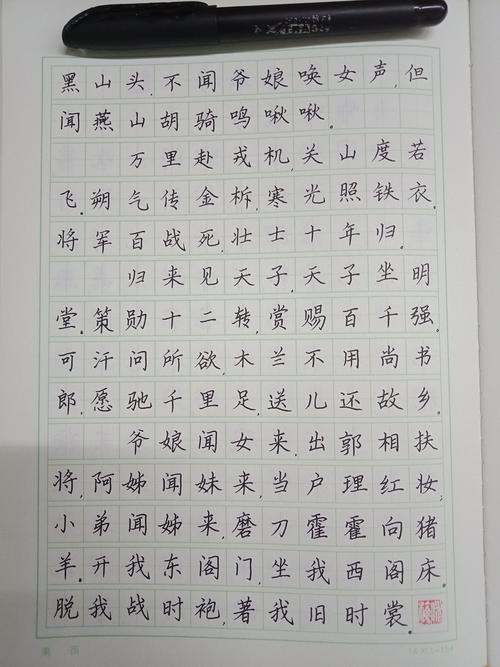 黑山头,不闻爷娘唤女声,但
闻燕山胡骑鸣啾啾。
万里赴戎机,关山度若
飞。朔气传金柝,寒光照铁衣。
将军百战死,壮士十年归。
归来见天子,天子坐明
堂。策勋十二转,赏赐百千强。
可汗问所欲,木兰不用尚书
郎,愿驰千里足,送儿还故乡。
爷娘闻女来,出郭相扶
将,阿姊闻妹来,当户理红妆,
小弟闻姊来,磨刀霍霍向猪
羊。开我东阁门,坐我西阁床,
脱我战时袍,著我旧时裳。